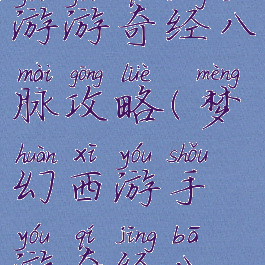 游游奇经八
mài gōng lüè mèng
脉攻略(梦
huàn xī yóu shǒu
幻西游手
yóu qí jīng bā